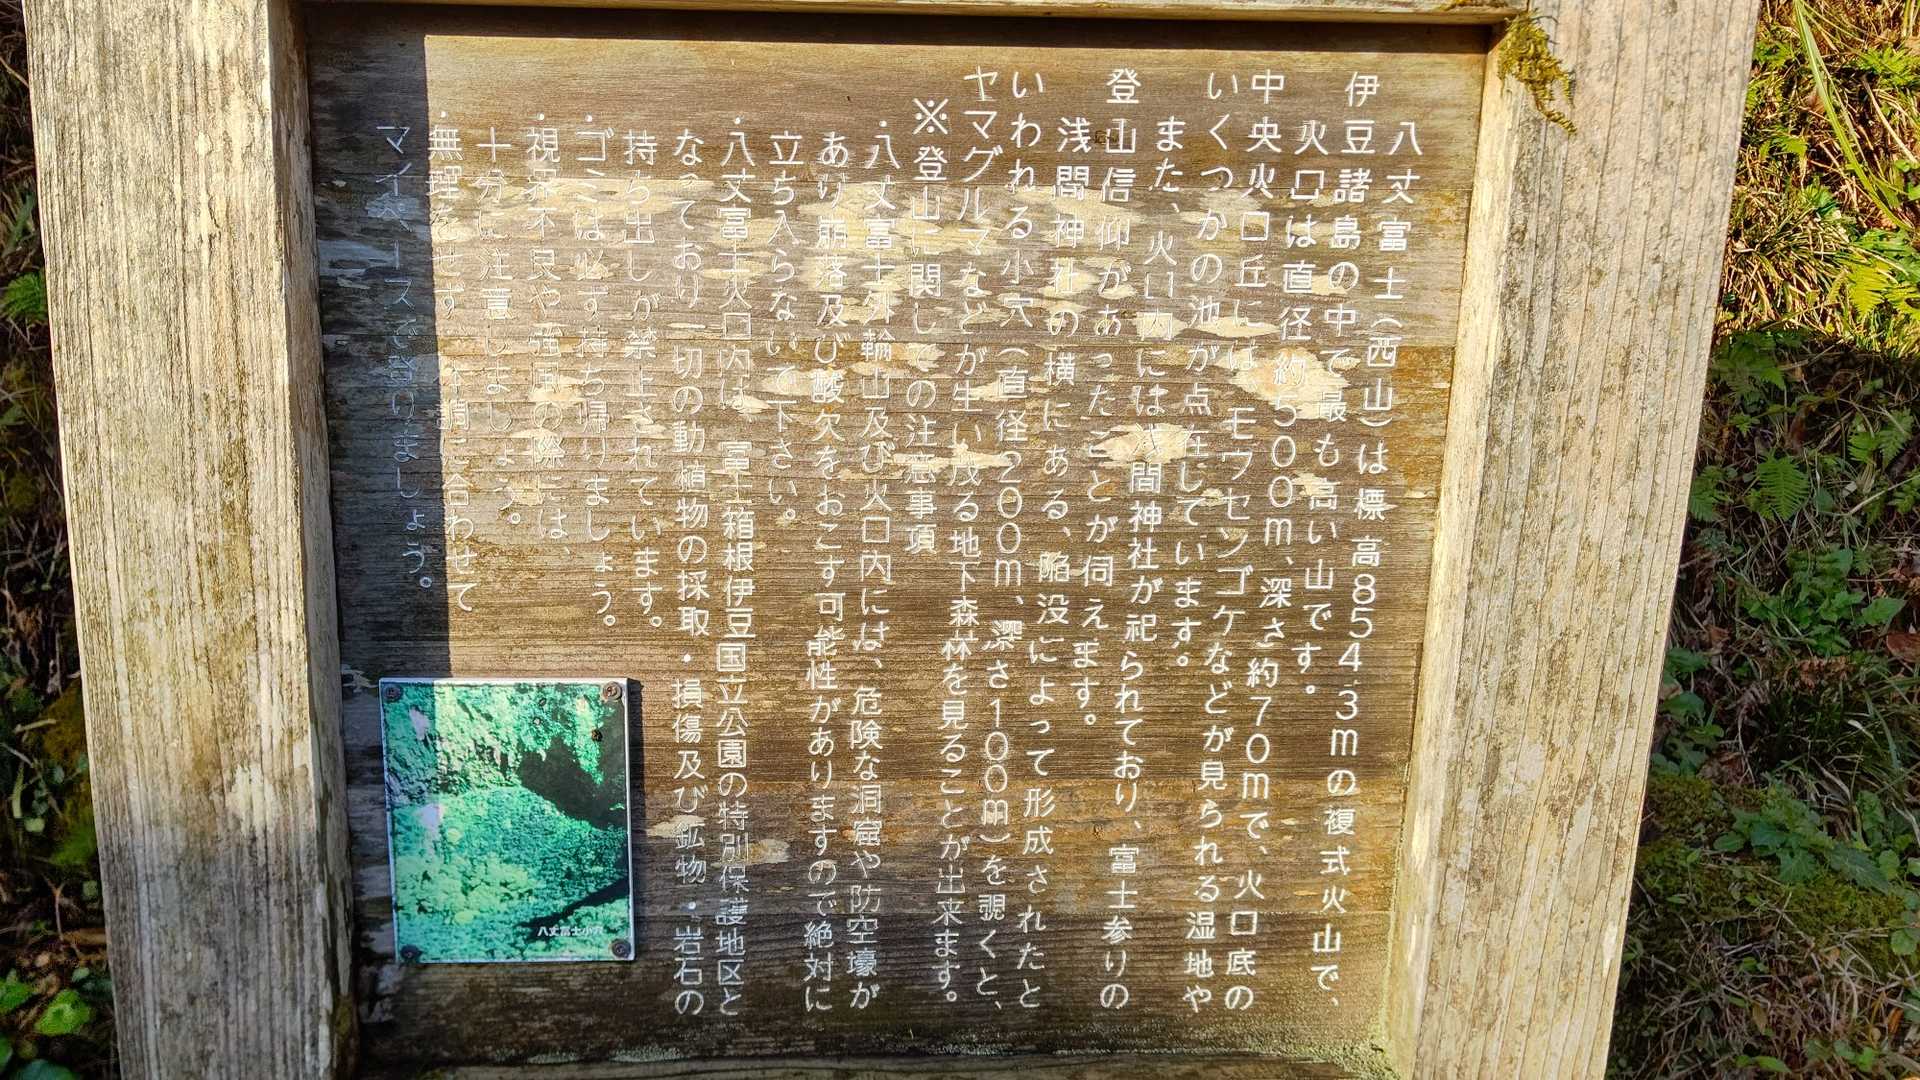 八丈富士(西山)は標高854.3mの複式火山で、
伊豆諸島の中で最も高い山です。
火口は直径約500m、深さ約70mで、火口底の
中央火口丘には、モウセンゴケなどが見られる湿地や
いくつかの池が点在しています。
また、火口内には浅間神社が祀られており、富士参りの
登山信仰があったことが伺えます。
浅間神社の横にある、陥没によって形成されたと
いわれる小穴(直径200m、深さ100m)を覗くと、
ヤマグルマなどが生い茂る地下森林を見ることが出来ます。
※登山に関しての注意事項
・八丈富士外輪山及び火口内には、危険な洞窟や防空壕が
あり崩落及び酸欠をおこす可能性がありますので絶対に
立ち入らないで下さい。
・八丈富士火口内は、富士箱根伊豆国立公園の特別保護地区と
なっており一切の動植物の採取・損傷及び鉱物・岩石の
持ち出しが禁止されています。
・ゴミは必ず持ち帰りましょう。
・視界不良や強風の際には、
十分に注意しましょう。
・無理をせず体調に合わせて
マイペースで登りましょう。
八丈富士小穴